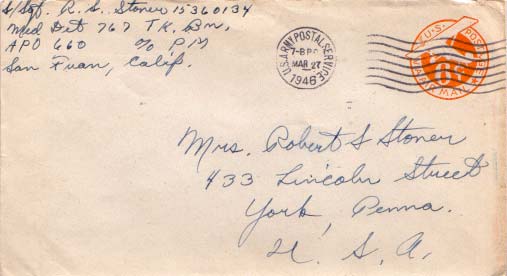 S/Sgt. R. S. Stoner 15360134
Med Det 767 T.K. Bn.
APO 660 c/o P.M
San Fran, Calif.
U.S. ARMY POSTAL SERVICE
7-8 PM
MAR 27
1946
U.S. POSTAGE
Mrs. Robert S Stoner
433 Lincoln Street
York, Penna.
U. S. A.